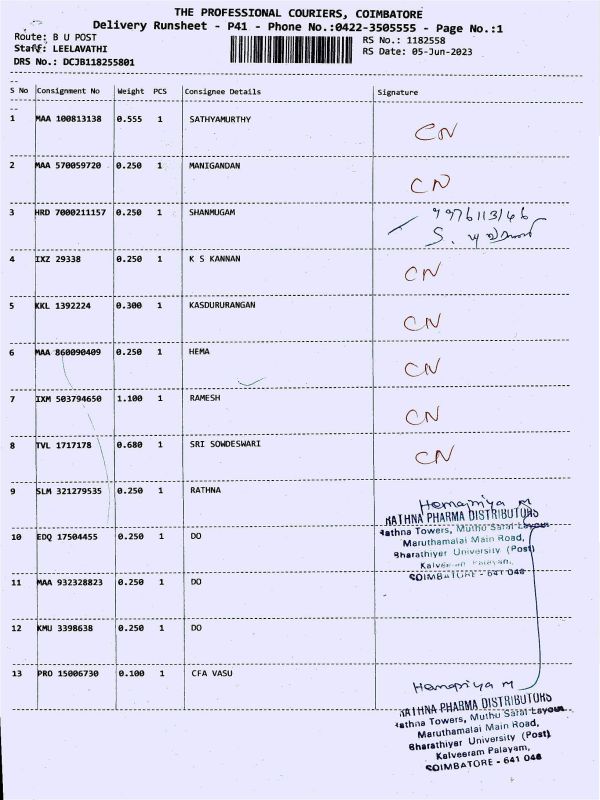 THE PROFESSIONAL COURIERS, COIMBATORE
Delivery Runsheet - P41 - Phone No.:0422-3505555 - Page No.:1
Route: B U POST
RS No.: 1182558
Staff: LEELAVATHI
RS Date: 05-Jun-2023
DRS No.: DCJB118255801
S No Consignment No Weight PCS Consignee Details Signature
1 MAA 100813138 0.555 1 SATHYAMURTHY CN
2 MAA 570059720 0.250 1 MANIGANDAN CN
3 HRD 7000211157 0.250 1 SHANMUGAM
4 IXZ 29338 0.250 1 K S KANNAN CN
5 KKL 1392224 0.300 1 KASDURURANGAN CN
6 MAA 860090409 0.250 1 HEMA CN
7 IXM 503794650 1.100 1 RAMESH CN
8 TVL 1717178 0.680 1 SRI SOWDESWARI CN
9 SLM 321279535 0.250 1 RATHNA Hemapriya M
RATHNA PHARMA DISTRIBUTORS
Rathna Towers, Muthu Sarai Layout
10 EDQ 17504455 0.250 1 DO
Maruthamalai Main Road,
Bharathiyer University (Post)
Kalveeram Palayam,
COIMBATORE - 641 046
11 MAA 932328823 0.250 1 DO
12 KMU 3398638 0.250 1 DO
13 PRO 15006730 0.100 1 CFA VASU
Hemapriya M
RATHNA PHARMA DISTRIBUTORS
Rathna Towers, Muthu Sarai Layout
Maruthamalai Main Road,
Bharathiyer University (Post)
Kalveeram Palayam,
COIMBATORE - 641 046